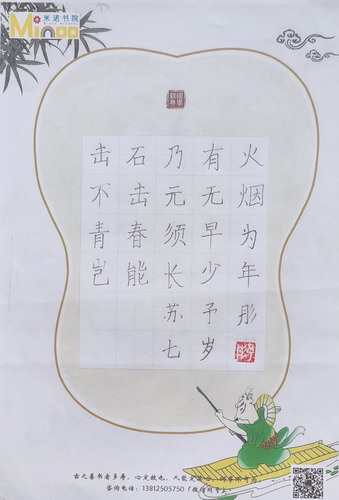 米诺书院
Minoo
火烟为年彤
有无早少予岁
乃元须长苏七
石击春能
击不青岂
古之善书者多寿，心定故也，人能定其心，何事不可为
咨询电话：13812505750（微信同号）